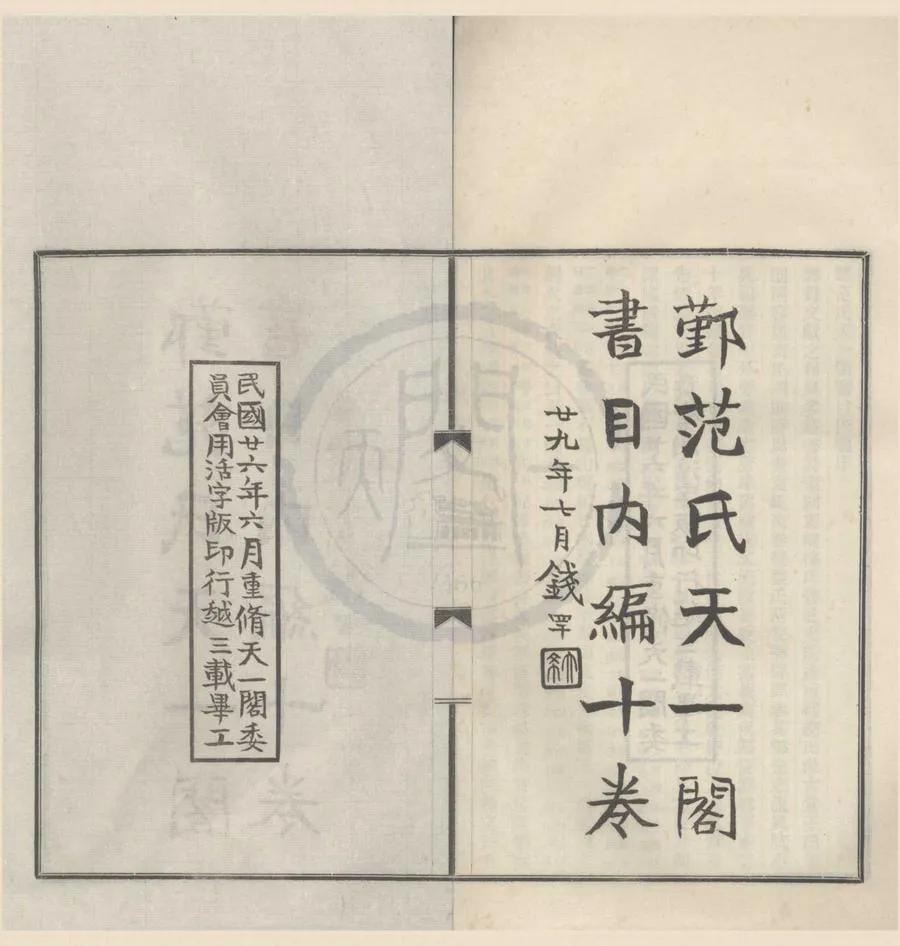 鄞范氏天一閣
書目內編十卷
廿九年七月錢罕
民國廿六年六月重脩天一閣委
員會用活字版印行越三載畢工